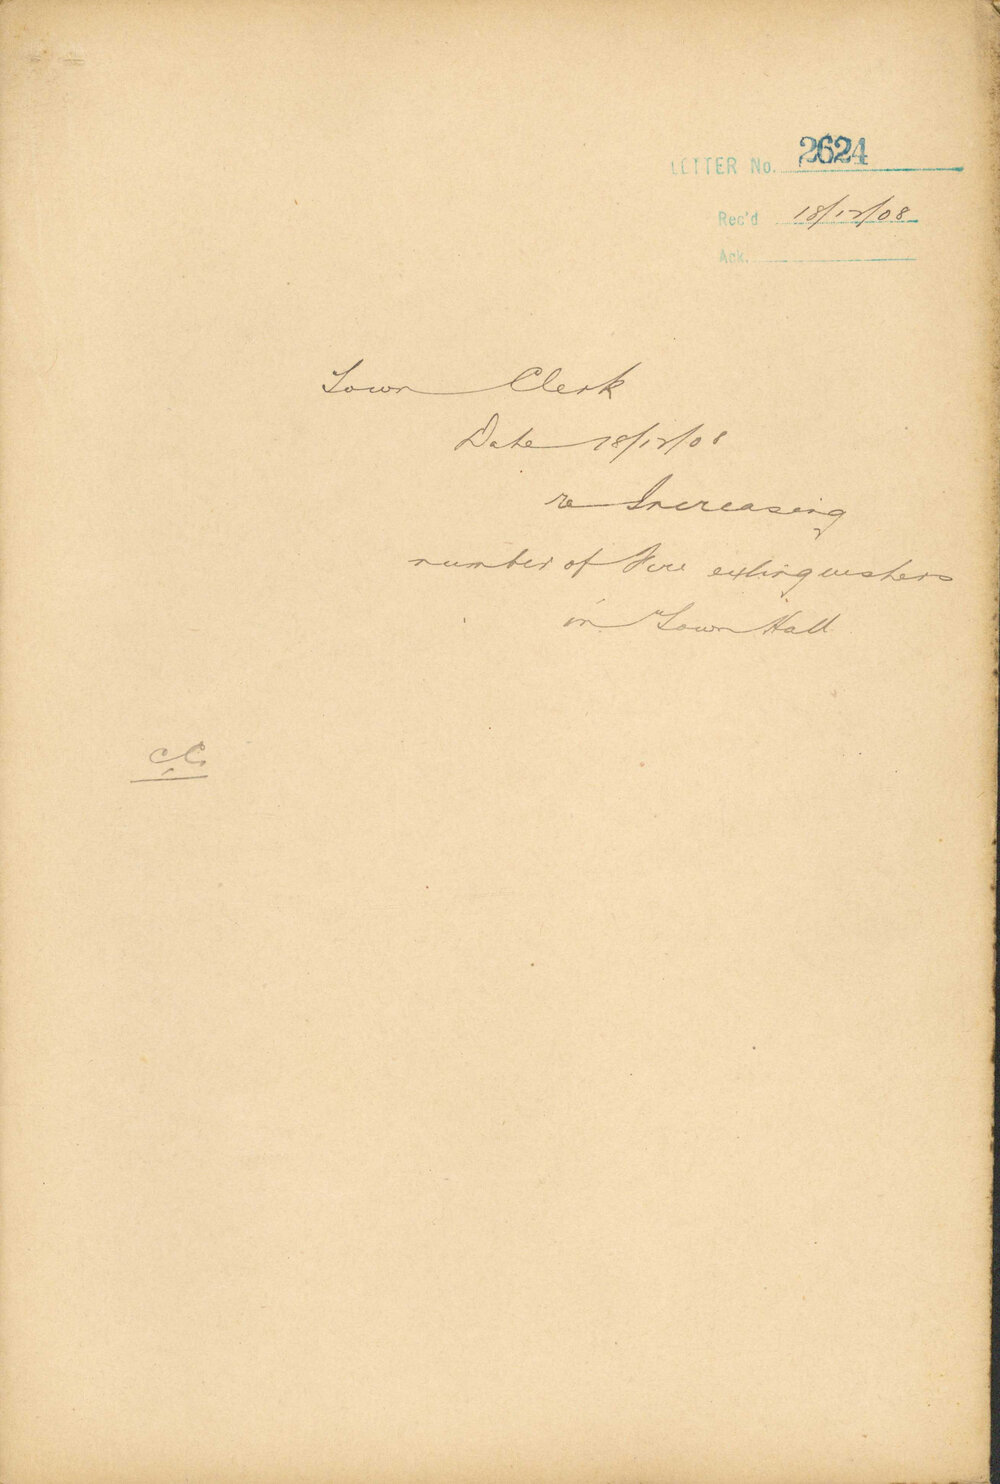 LETTER No. 2624
Rec'd 18/12/08
Ack.
Town Clerk
Date 18/12/08
re Increasing
number of Fire extinguishers
in Town Hall